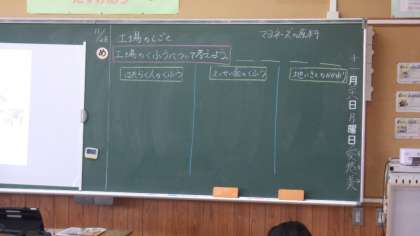 11/28
工場のしごと
マヨネーズの原料
め
工場のくふうについて考えよう。
はたらく人のくふう
えいせい面のくふう
地いきとのかかわり
月
日
月曜日